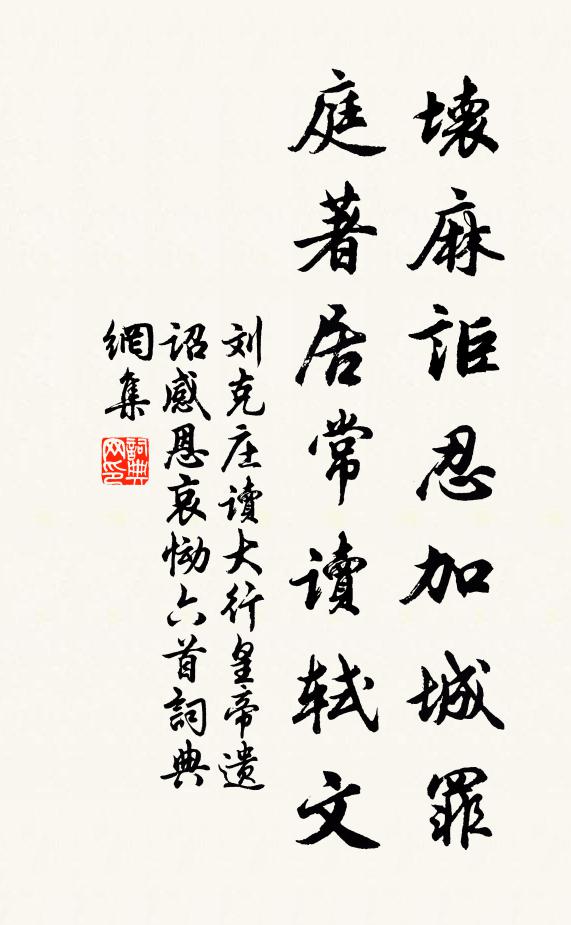 壞麻詎忍加城罪
庭著居常讀軾文
刘克庄讀大行皇帝遗
詔感恩哀恸六首詞典
網集
詞典网印